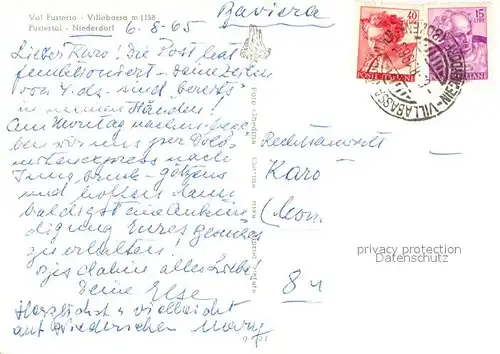 Val Pusteria - Villabassa m 1158
Pustertal - Niederdorf
6.-8.-65
Baviera
40
15
LIRE
POSTE ITALIANE
POSTE ITALIANE
NIEDERDORF
VILLABASSA
Lieber Karo! die Post hat
funktioniert - deine Zeilen
vom 4. ds. sind "bereits"
in meinen Händen!
Am Montag nachm. bege-
ben wir uns per Dolo-
mitenexpress nach
Innsbruck - Götzens
und hoffen dann
baldigst eine Ankün
digung Eures Besuches
zu erhalten!
Bis dahin alles Liebe!
Deine Else
Herzlichst + vielleicht
auf Wiedersehen Mary
Rechtsanwalt
Karo
8 M
privacy protection
Datenschutz